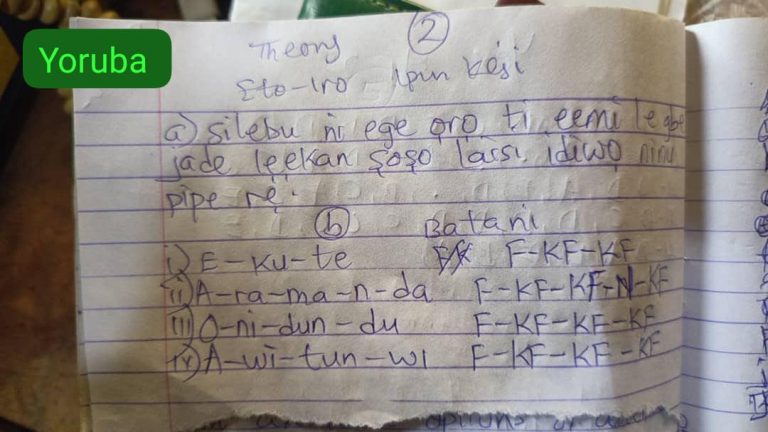 Yoruba
Theory ②
Eto-Iro - Ipin Kesi
a) Silebu ni ege ọrọ ti eemi le gbe
jade lẹẹkan ṣoṣo laisi idiwọ ninu
pipe rẹ.
ⓑ Batani
i) E-ku-te F-KF-KF
ii) A-ra-ma-n-da F-KF-KF-N-KF
iii) O-ni-dun-du F-KF-KF-KF
iv) A-wi-tun-wi F-KF-KF-KF